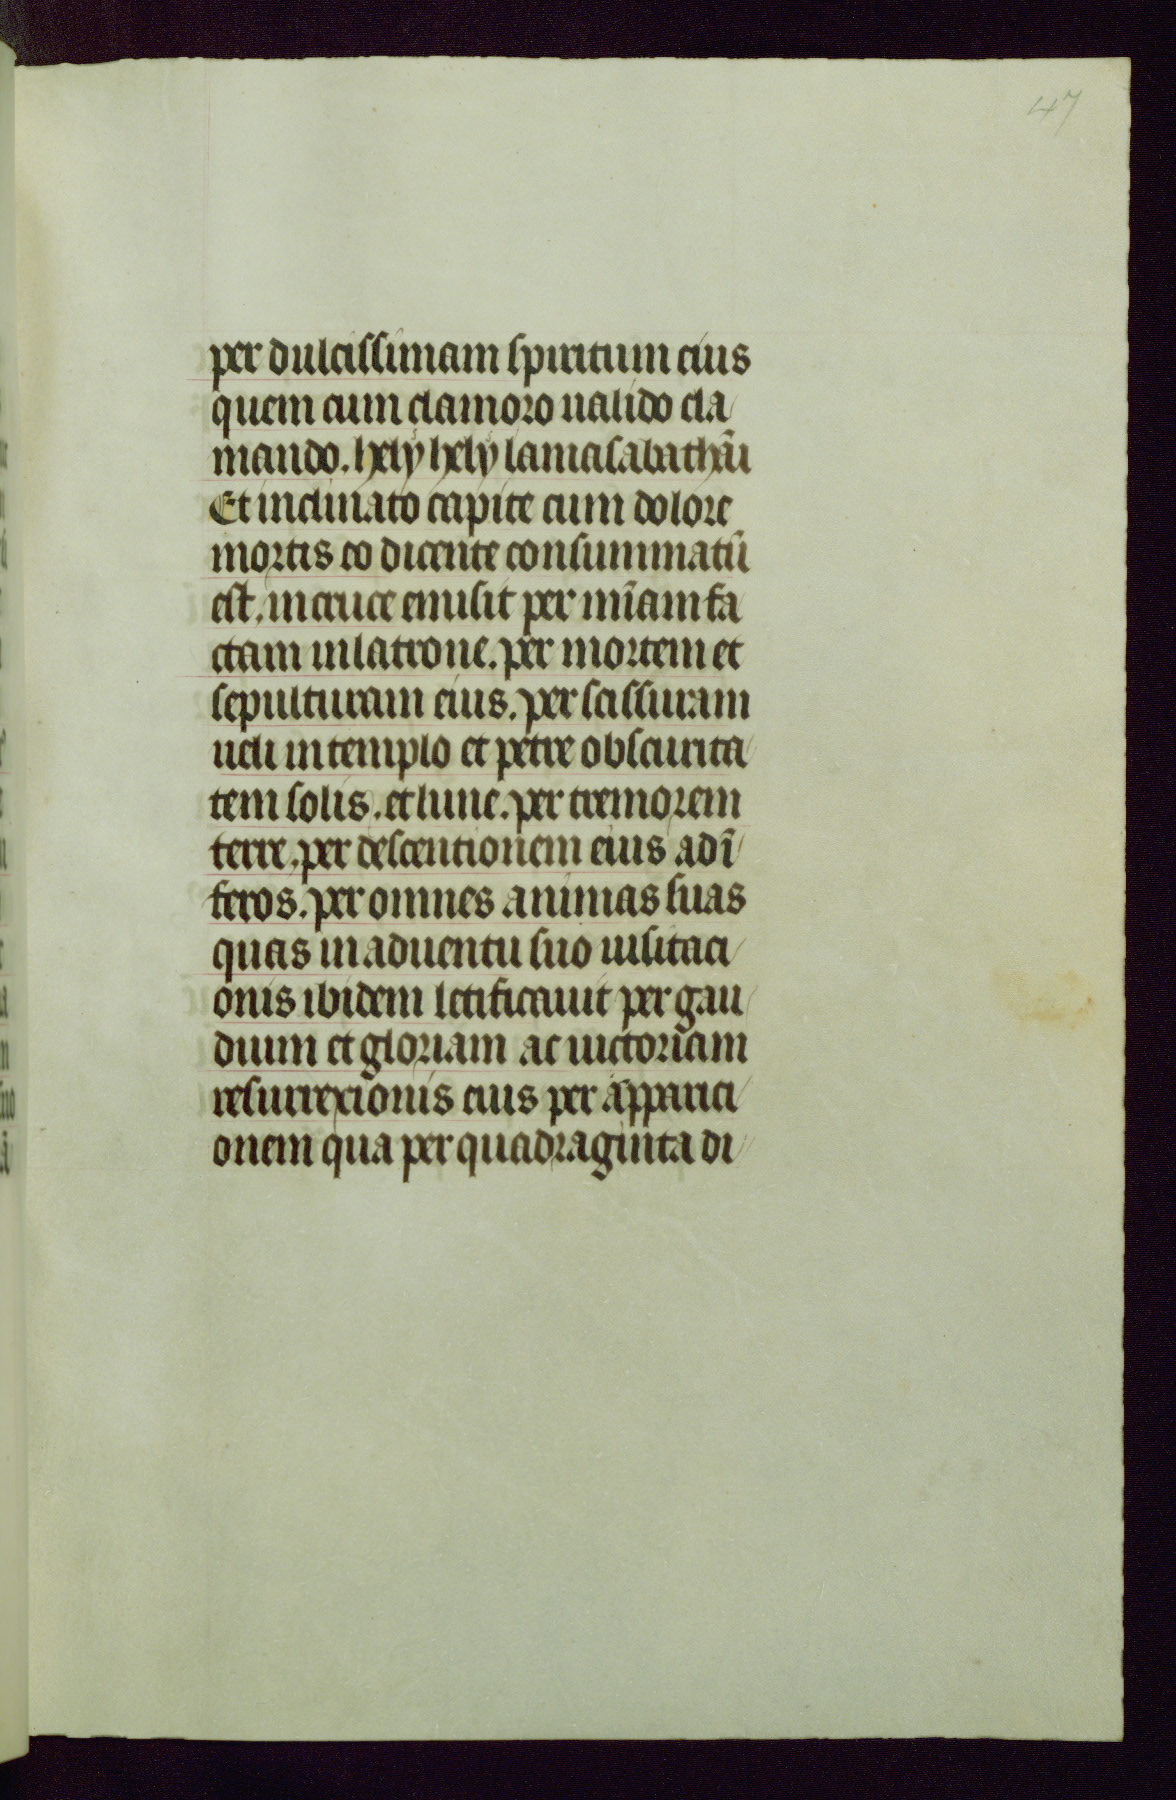 47
per dulcissimam spiritum eius
quem cum clamoro ualido cla
mando. hely hely lamasabathãi
Et inclinato capite cum dolore
mortis eo dicente consummatũ
est. in cruce emisit per mĩam fa
ctam in latrone. per mortem et
sepulturam eius. per scissuram
ueli in templo et petre obscurita
tem solis. et lune. per tremorem
terre. per descentionem eius ad ĩ
feros. per omnes animas suas
quas in aduentu suo uisitaci
onis ibidem letificauit per gau
dium et gloriam ac uictoriam
resurrexionis eius per apparici
onem qua per quadraginta di